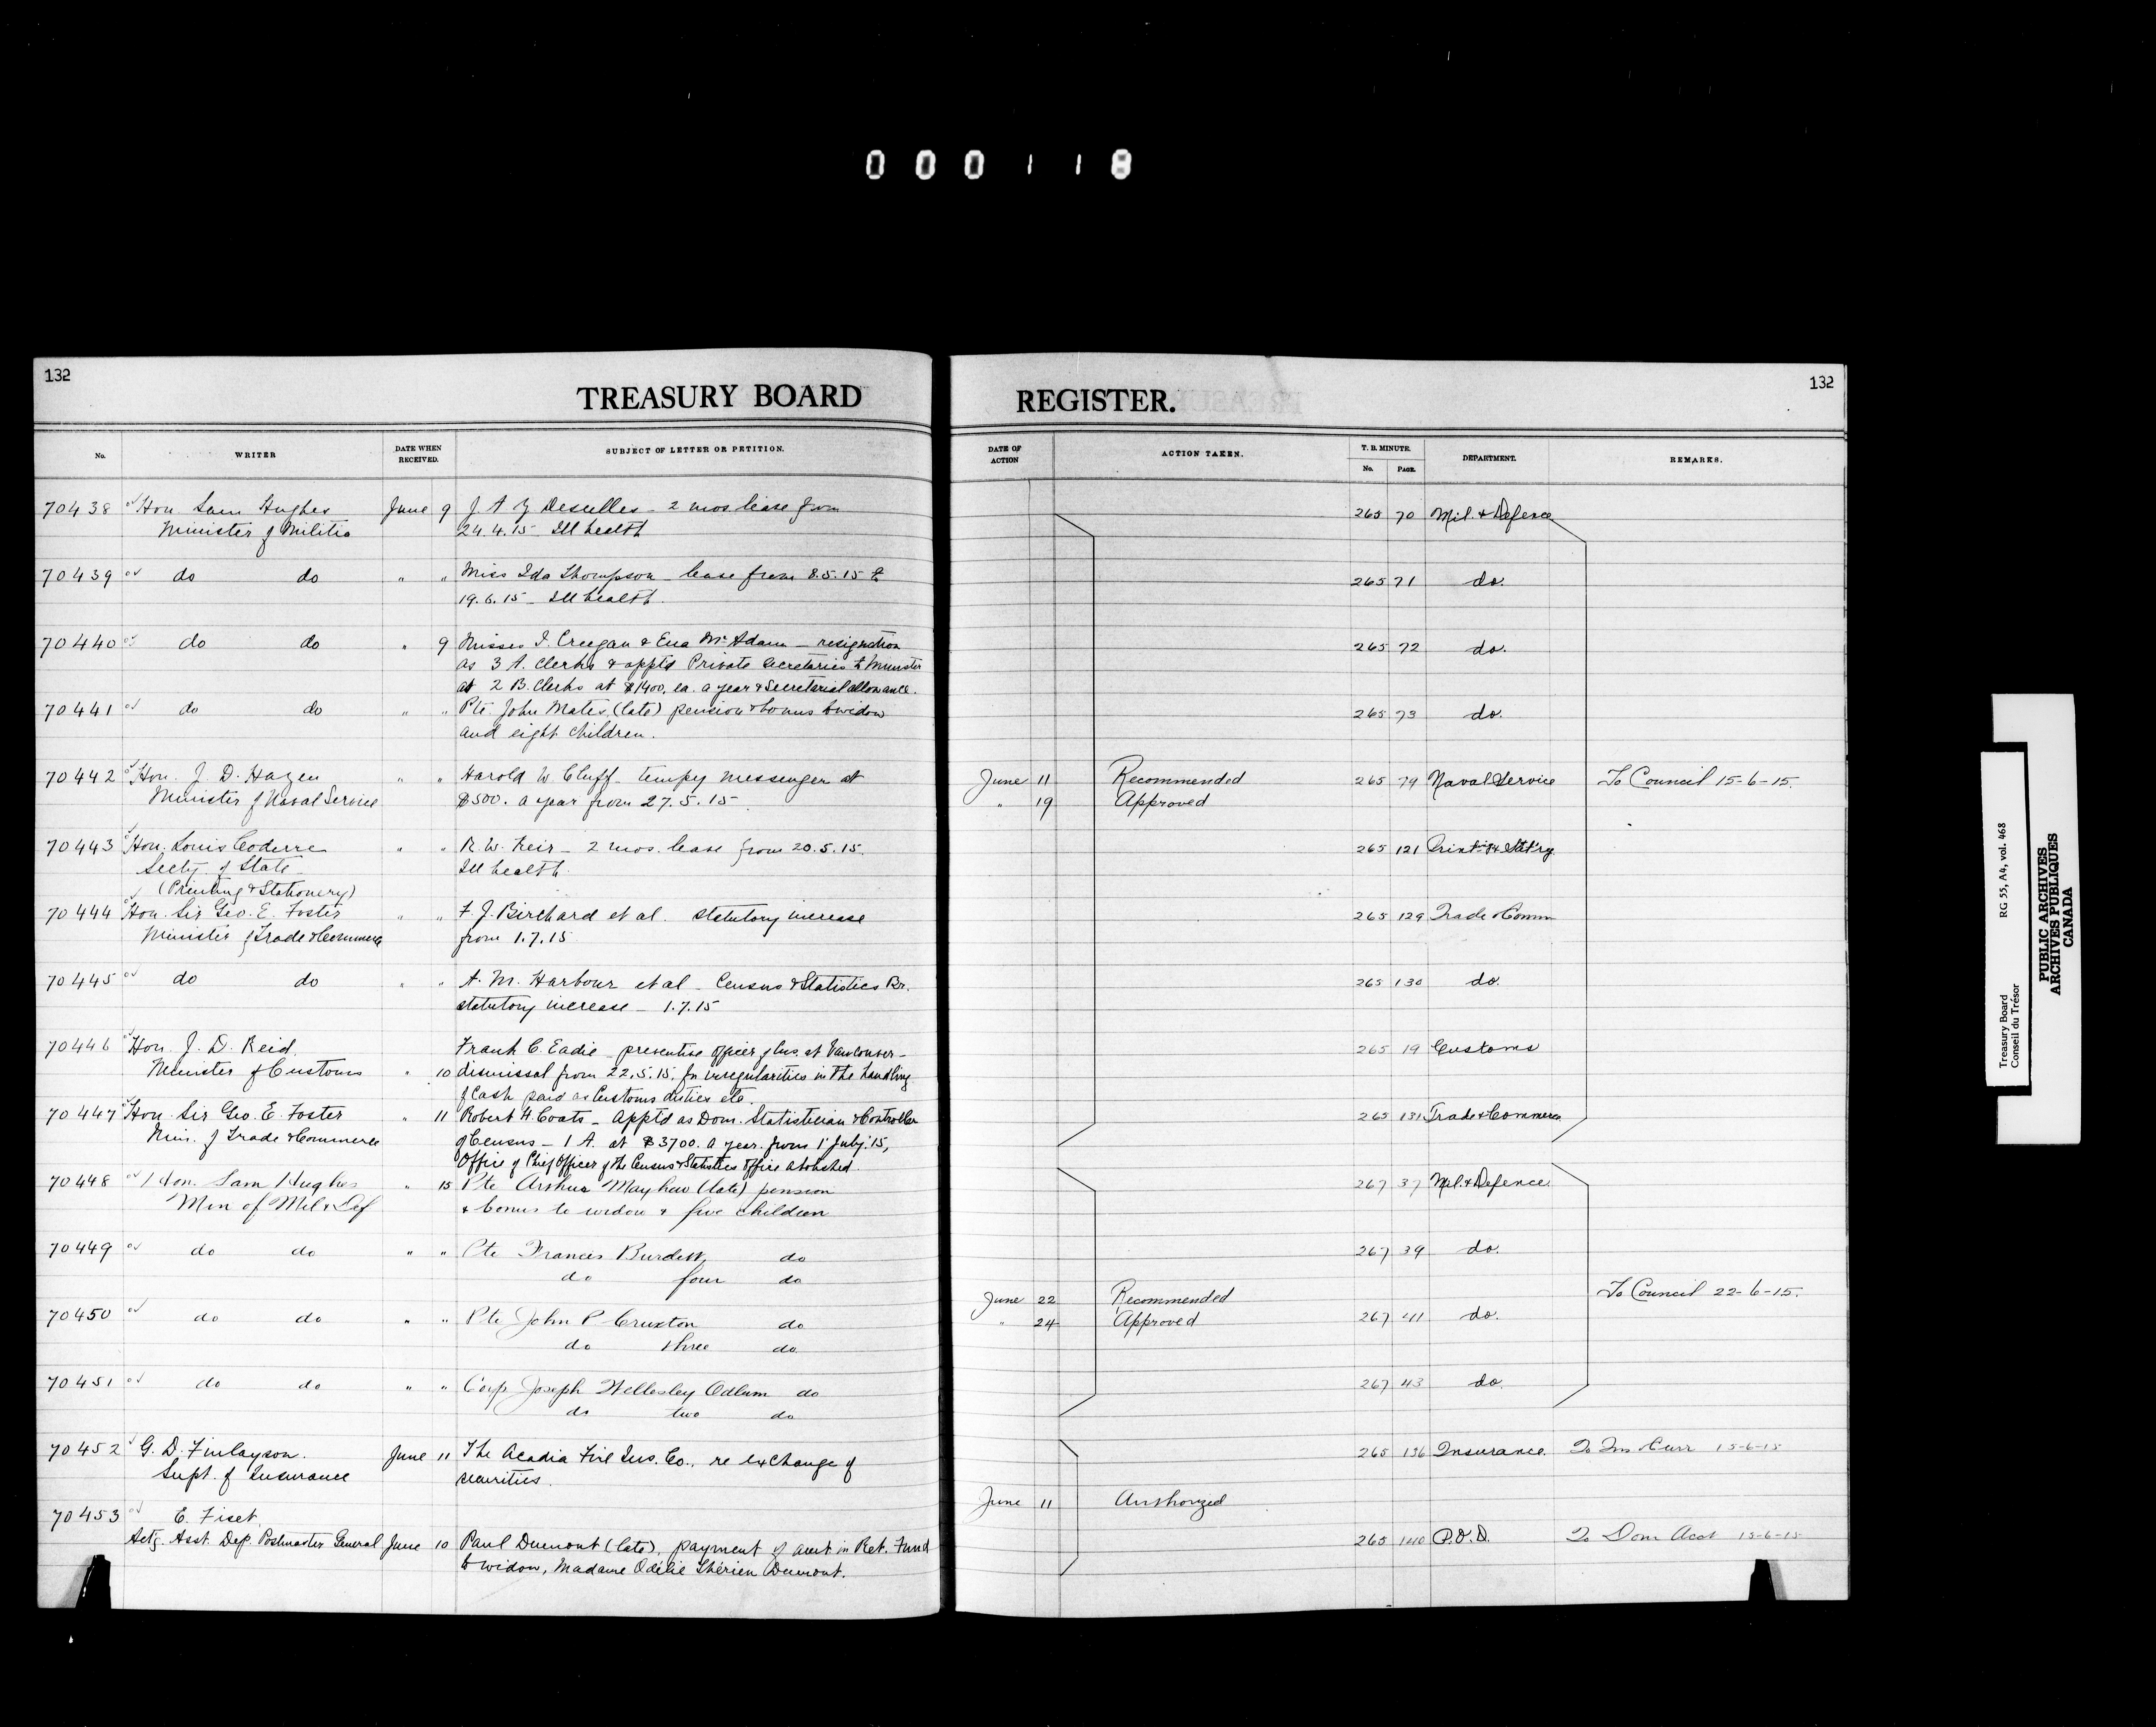 000118
132
TREASURY BOARD
No.
WRITER
DATE WHEN RECEIVED.
SUBJECT OF LETTER OR PETITION.
70438 Hon Sam Hughes June 9 J A Z Deselles - 2 mos leave from
Minister of Militia 24.4.15 - Ill health
70439 do do " " Miss Ida Thompson - leave from 8.5.15 to
19.6.15 - Ill health
70440 do do " 9 Misses I. Creegan & Ena McAdam - resignation
as 3 A. Clerks & apptd Private Secretaries to Minister
at 2 B. Clerks at $1400. ea. a year & Secretarial allowance.
70441 do do " " Pte John Mates (late) pension & bonus to widow
and eight children.
70442 Hon. J. D. Hazen " " Harold W. Cluff - tempy messenger at
Minister of Naval Service $500. a year from 27.5.15
70443 Hon. Louis Coderre " " R. W. Keir - 2 mos. leave from 20.5.15.
Secty of State Ill health
(Printing & Stationery)
70444 Hon. Sir Geo. E. Foster " " F. J. Birchard et al. statutory increase
Minister of Trade & Commerce from 1.7.15
70445 do do " " A. M. Harbour et al - Census & Statistics Br.
statutory increase - 1.7.15
70446 Hon. J. D. Reid. Frank C. Eadie - preventive officer of Cus. at Vancouver -
Minister of Customs " 10 dismissal from 22.5.15. for irregularities in the handling
of Cash paid as Customs duties etc.
70447 Hon. Sir Geo. E. Foster " 11 Robert H. Coats - Apptd as Dom. Statistician & Controller
Min. of Trade & Commerce of Census - 1 A. at $3700. a year. from 1 July '15,
Office of Chief Officer of the Census & Statistics Office abolished.
70448 Hon. Sam Hughes " 15 Pte Arthur Mayhew (late) pension
Min of Mil & Def & bonus to widow & five children
70449 do do " " Pte Francis Burdett do
do four do
70450 do do " " Pte John P Cruxton do
do three do
70451 do do " " Corp Joseph Wellesley Odlum do
do two do
70452 G. D. Finlayson. June 11 The Acadia Fire Ins. Co., re exchange of
Supt. of Insurance securities.
70453 E. Fiset.
Actg. Asst. Dep. Postmaster General June 10 Paul Dumont (late), payment of amt in Ret. Fund
to widow, Madame Odélie Thérien Dumont.
REGISTER.
132
DATE OF ACTION
ACTION TAKEN.
T. B. MINUTE.
No.
PAGE.
DEPARTMENT.
REMARKS.
265 70 Mil. & Defence
265 71 do.
265 72 do.
265 73 do.
June 11 Recommended 265 79 Naval Service To Council 15-6-15.
" 19 Approved
265 121 Print'g & Stat'ry
265 129 Trade & Comm
265 130 do.
265 19 Customs
265 131 Trade & Commerce
267 37 Mil. & Defence
267 39 do.
To Council 22-6-15.
June 22 Recommended
" 24 Approved 267 41 do.
267 43 do.
265 136 Insurance. To Ins Curr 15-6-15
June 11 Authorized
265 140 P.O.D. To Dom Acct 15-6-15
Treasury Board RG 55, A4, vol. 468
Conseil du Trésor
PUBLIC ARCHIVES
ARCHIVES PUBLIQUES
CANADA